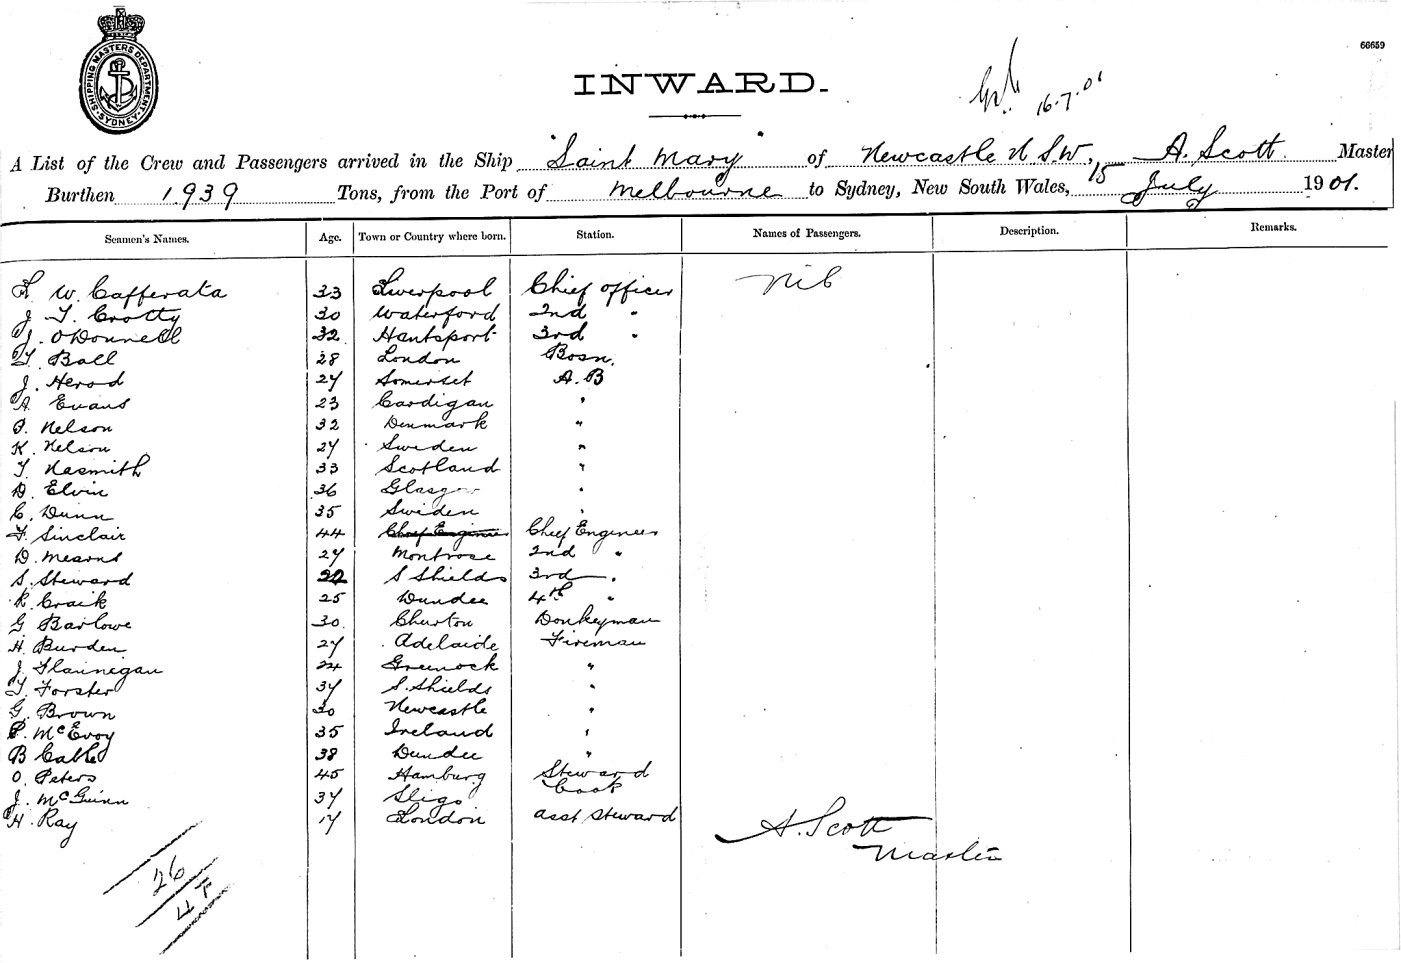 SHIPPING MASTERS DEPARTMENT SYDNEY
66659
INWARD.
16.7.01
A List of the Crew and Passengers arrived in the Ship "Saint Mary" of Newcastle N.S.W., A. Scott Master
Burthen 1939 Tons, from the Port of Melbourne to Sydney, New South Wales, 15 July 1901.
Seamen's Names. Age. Town or Country where born. Station. Names of Passengers. Description. Remarks.
W. Cafferata 33 Liverpool Chief officer Nil
J. T. Crotty 30 Waterford 2nd "
J. O'Donnell 32 Hantsport 3rd "
T. Ball 28 London Bosn.
J. Herod 27 Somerset A.B
A. Evans 23 Cardigan "
P. Nelson 32 Denmark "
K. Nelson 27 Sweden "
T. Nasmith 33 Scotland "
D. Elvin 36 Glasgow "
C. Dunn 35 Sweden "
F. Sinclair 44 Chief Engineer Chief Engineer
D. Mearns 27 Montrose 2nd "
S. Steward S Shields 3rd "
R. Craik 25 Dundee 4th "
G Barlowe 30 Churton Donkeyman
H. Burden 27 Adelaide Fireman
J. Flannegan 24 Greenock "
T. Forster 37 S. Shields "
G. Brown 30 Newcastle "
P. McEvoy 35 Ireland "
B Cable 38 Dundee "
O. Peters 45 Hamburg Steward
J. McGuinn 37 Sligo Cook
H. Ray 17 London asst Steward
A. Scott
Master
26
4